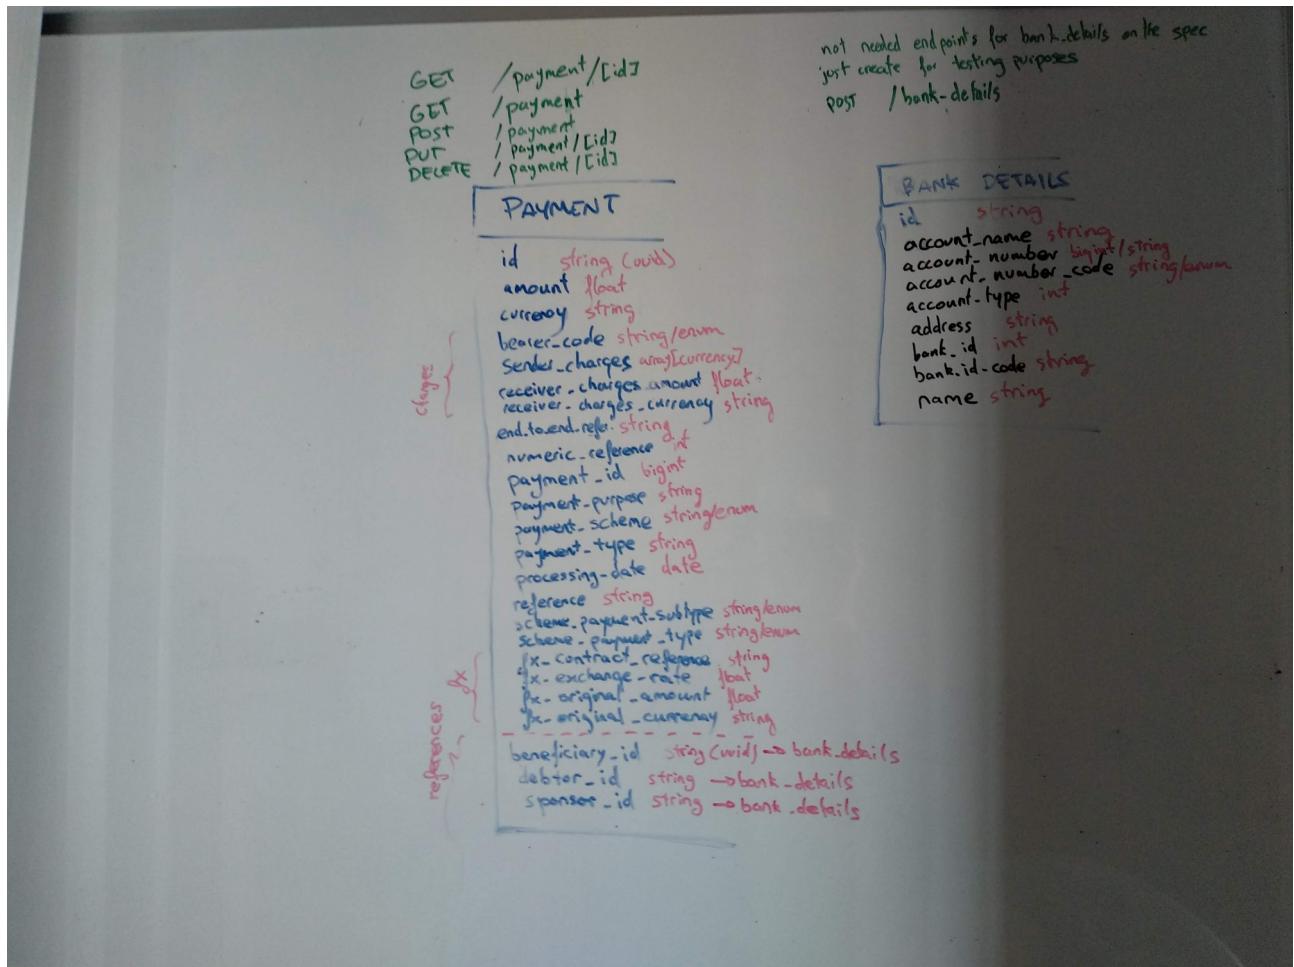 GET /payment/[id]
GET /payment
POST /payment
PUT /payment/[id]
DELETE /payment/[id]
not needed endpoints for bank_details on the spec
just create for testing purposes
POST /bank-details
PAYMENT
id string (uuid)
amount float
currency string
bearer_code string/enum
sender_charges array[currency]
receiver_charges_amount float
receiver_charges_currency string
end_to_end_refer. string
numeric_reference int
payment_id bigint
payment_purpose string
payment_scheme string/enum
payment_type string
processing_date date
reference string
scheme_payment_subtype string/enum
scheme_payment_type string/enum
fx_contract_reference string
fx_exchange_rate float
fx_original_amount float
fx_original_currenay string
beneficiary_id string (uuid) → bank_details
debtor_id string → bank_details
sponsor_id string → bank_details
charges
fx
references
BANK DETAILS
id string
account_name string
account_number bigint/string
account_number_code string/enum
account-type int
address string
bank_id int
bank_id-code string
name string